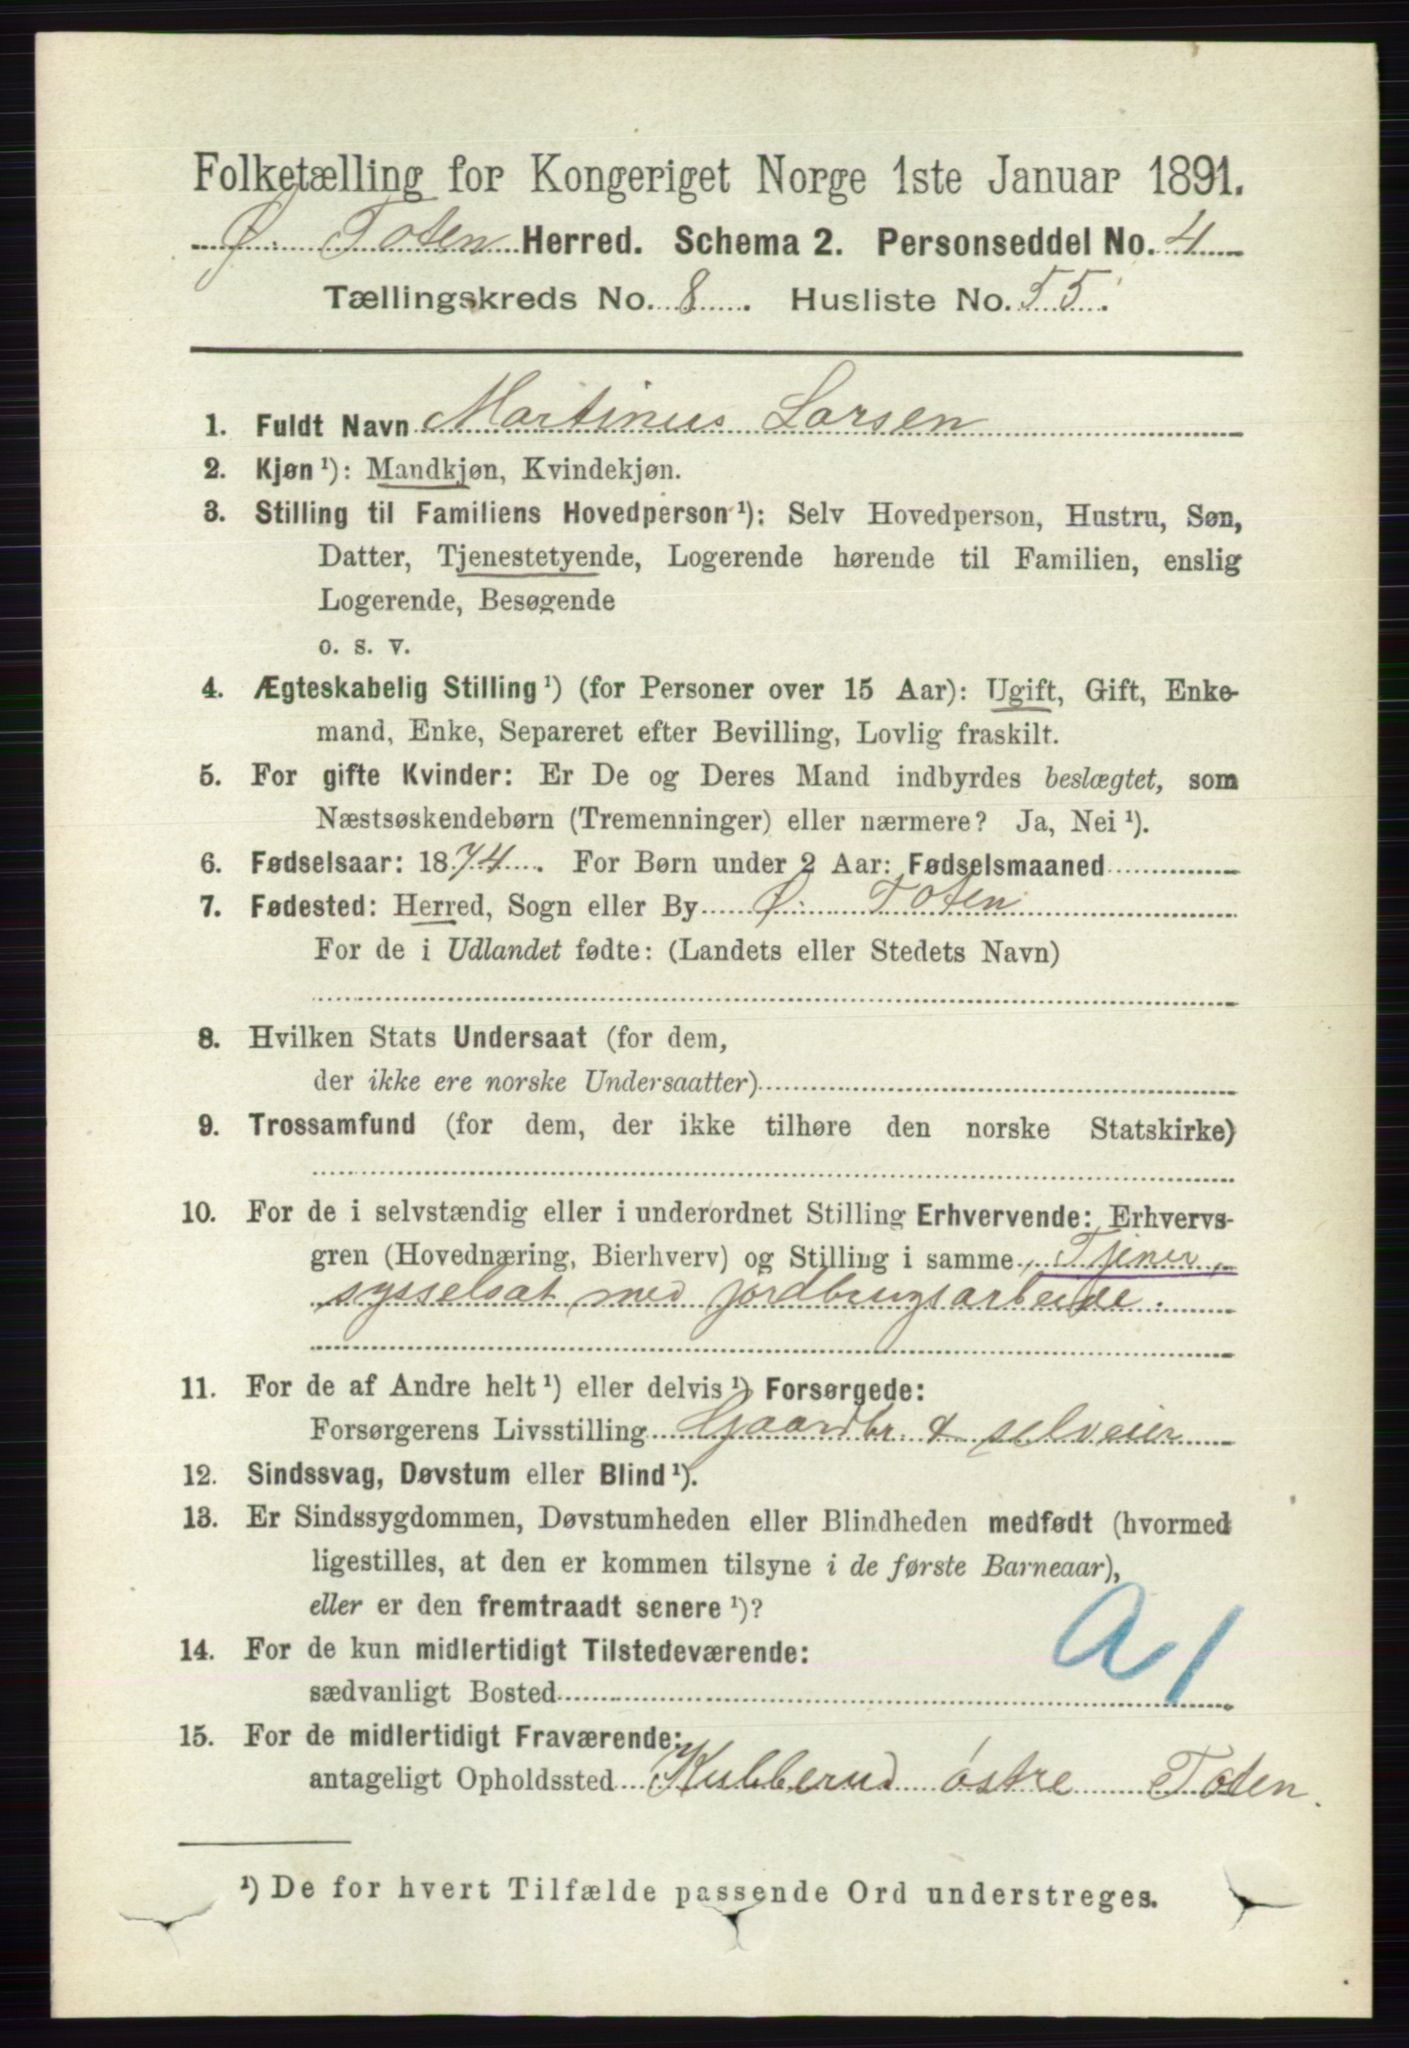 Folketælling for Kongeriget Norge 1ste Januar 1891.
Ø. Toten Herred. Schema 2. Personseddel No. 4
Tællingskreds No. 8. Husliste No. 55.
1. Fuldt Navn Martinus Larsen
2. Kjøn¹): Mandkjøn, Kvindekjøn.
3. Stilling til Familiens Hovedperson¹): Selv Hovedperson, Hustru, Søn,
Datter, Tjenestetyende, Logerende hørende til Familien, enslig
Logerende, Besøgende
o. s. v.
4. Ægteskabelig Stilling¹) (for Personer over 15 Aar): Ugift, Gift, Enke-
mand, Enke, Separeret efter Bevilling, Lovlig fraskilt.
5. For gifte Kvinder: Er De og Deres Mand indbyrdes beslægtet, som
Næstsøskendebørn (Tremenninger) eller nærmere? Ja, Nei¹).
6. Fødselsaar: 1874. For Børn under 2 Aar: Fødselsmaaned
7. Fødested: Herred, Sogn eller By Ø. Toten
For de i Udlandet fødte: (Landets eller Stedets Navn)
8. Hvilken Stats Undersaat (for dem,
der ikke ere norske Undersaatter)
9. Trossamfund (for dem, der ikke tilhøre den norske Statskirke)
10. For de i selvstændig eller i underordnet Stilling Erhvervende: Erhvervs-
gren (Hovednæring, Bierhverv) og Stilling i samme, Tjener,
sysselsat med jordbrugsarbeide.
11. For de af Andre helt¹) eller delvis¹) Forsørgede:
Forsørgerens Livsstilling Gaardbr. & selveier
12. Sindssvag, Døvstum eller Blind¹).
13. Er Sindssygdommen, Døvstumheden eller Blindheden medfødt (hvormed
ligestilles, at den er kommen tilsyne i de første Barneaar),
eller er den fremtraadt senere¹)?
14. For de kun midlertidigt Tilstedeværende:
sædvanligt Bosted
a1
15. For de midlertidigt Fraværende:
antageligt Opholdssted Kubberud østre Toten.
¹) De for hvert Tilfælde passende Ord understreges.